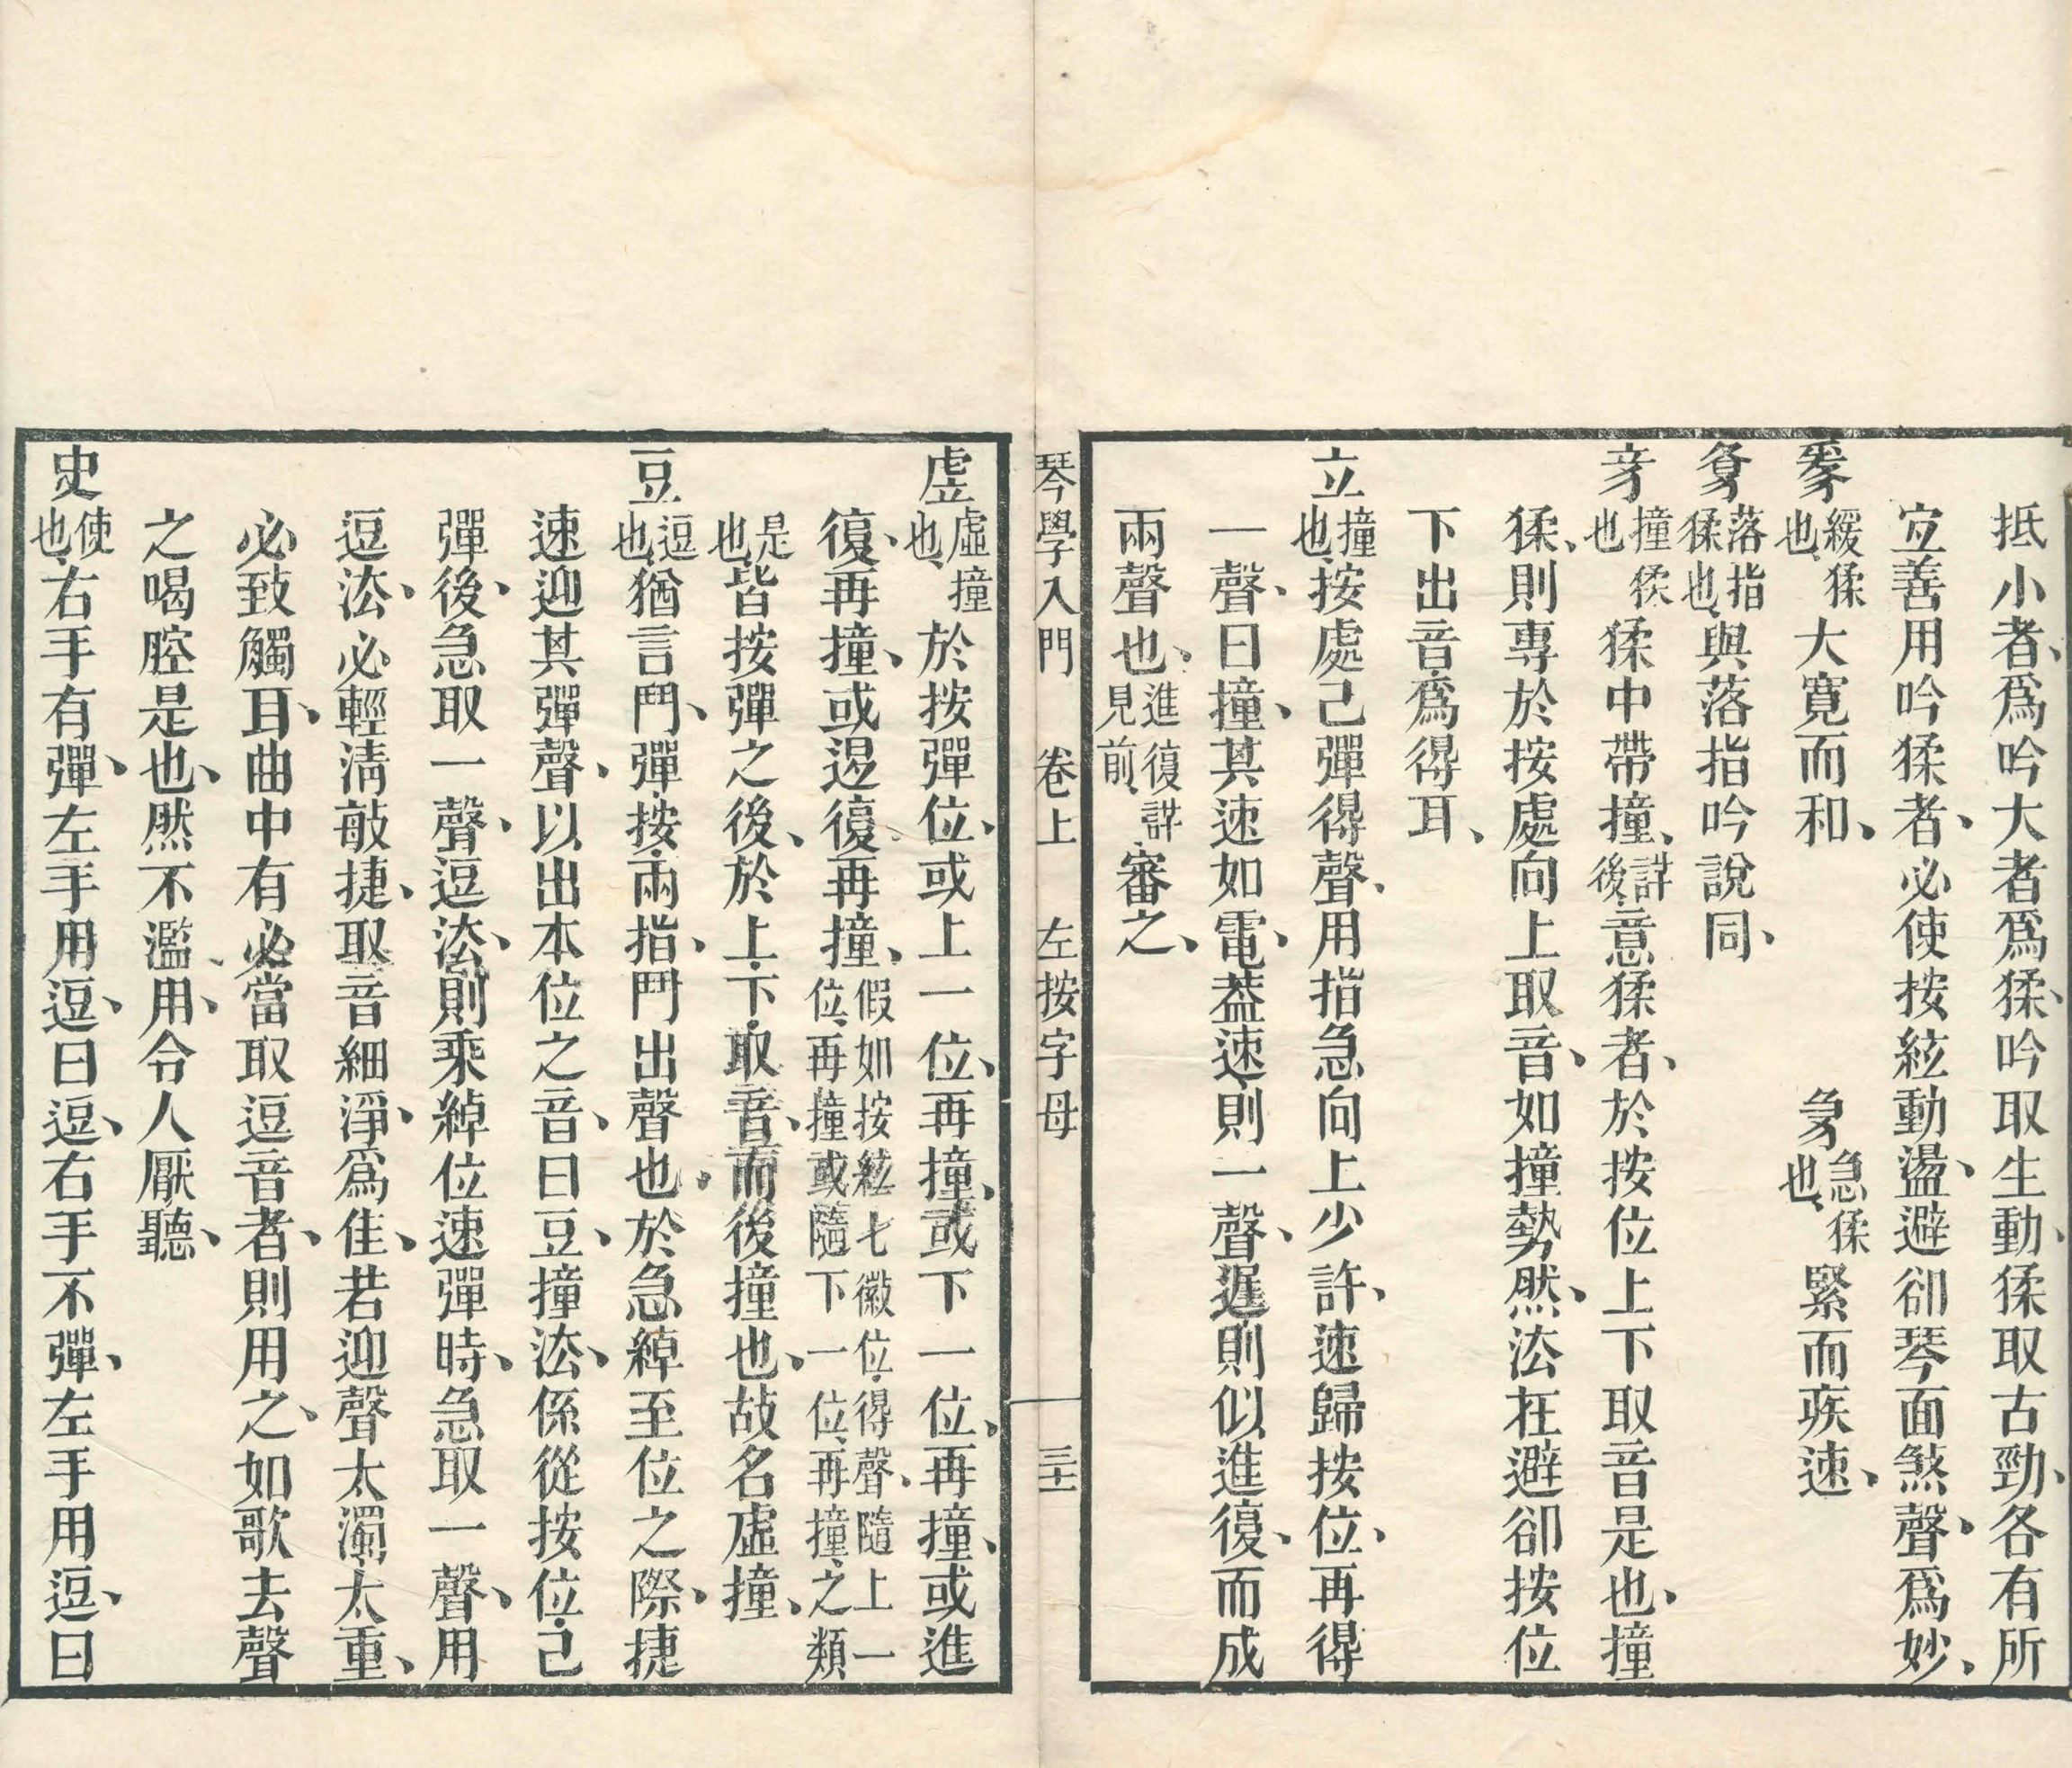 抵小者、爲吟大者爲猱、吟取生動、猱取古勁、各有所
宜善用吟猱者、必使按絃動盪、避卻琴面煞聲、爲妙、
緩猱也、大寬而和、 急猱也、緊而疾速、
落指猱也、與落指吟說同、
撞猱也 猱中帶撞、詳後、意猱者、於按位上下取音是也、撞
猱、則專於按處向上取音、如撞勢然、法在避卻按位
下出音爲得耳、
立撞也、按處已彈得聲、用指急向上少許、速歸按位、再得
一聲、曰撞、其速如電、葢速則一聲、遲則似進復、而成
兩聲也、進復詳見前、審之、
琴學入門 卷上 左按字母 三十一
虗虛撞也、於按彈位、或上一位、再撞、或下一位、再撞、或進
復、再撞、或退復再撞、假如按絃七徽位、得聲、隨上一位、再撞、或隨下一位、再撞、之類
是也、皆按彈之後、於上、下、取音、而後撞也、故名虛撞、
豆逗也、猶言鬥、彈、按、兩指、鬥出聲也、於急綽至位之際、捷
速迎其彈聲、以出本位之音、曰豆、撞法、係從按位、已
彈後、急取一聲、逗法、則乘綽位速彈時、急取一聲、用
逗法、必輕清敲捷、取音細淨、爲佳、若迎聲太濁、太重、
必致觸耳、曲中有必當取逗音者、則用之、如歌去聲
之喝腔是也、然不濫用、令人厭聽、
史使也、右手有彈、左手用逗、曰逗、右手不彈、左手用逗、曰